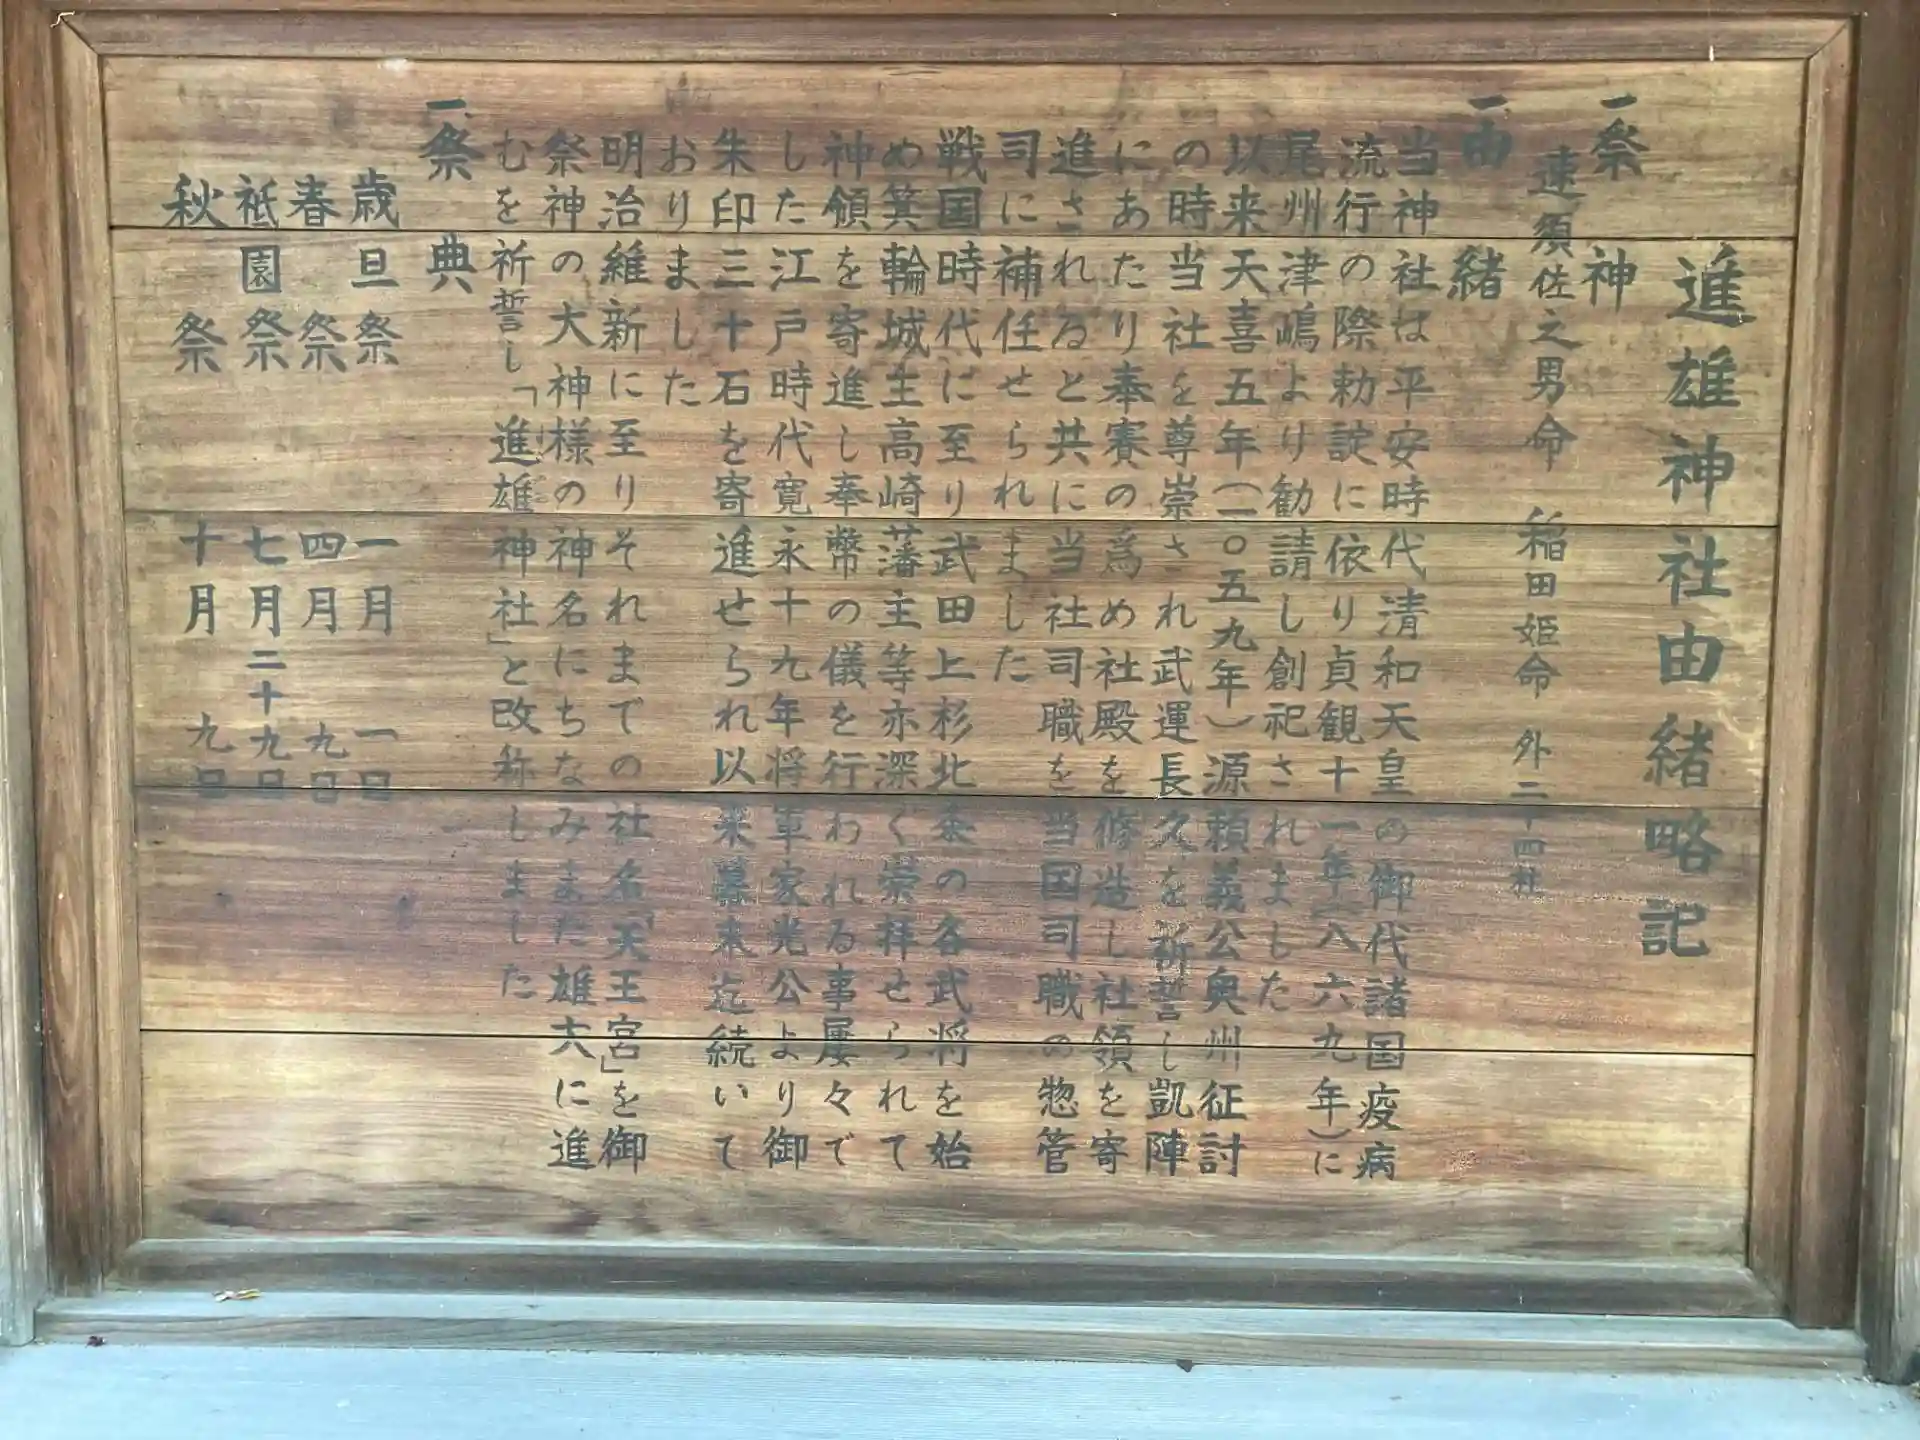 進雄神社由緒略記
一、祭神
速須佐之男命 稲田姫命 外二十四社
一、由緒
当神社は平安時代清和天皇の御代諸国疫病
流行の際勅諚に依り貞観十一年(八六九年)に
尾州津嶋より勧請し創祀されました
以来天喜五年(一〇五九年)源頼義公奥州征討
の時当社を尊崇され武運長久を祈誓し凱陣
にあたり奉賽の為め社殿を修造し社領を寄
進されると共に当社司職を当国司職の惣管
司に補任せられました
戦国時代に至り武田上杉北条の各武将を始
め箕輪城主高崎藩主等亦深く崇拝せられて
神領を寄進し奉幣の儀を行われる事屢々で
した江戸時代寛永十九年将軍家光公より御
朱印三十石を寄進せられ以来幕末迄続いて
おりました
明治維新に至りそれまでの社名「天王宮」を御
祭神の大神様の神名にちなみまた雄大に進
むを祈誓し「進雄神社」と改称しました
一、祭典
歳旦祭 一月一日
春祭 四月九日
祗園祭 七月二十九日
秋祭 十月九日